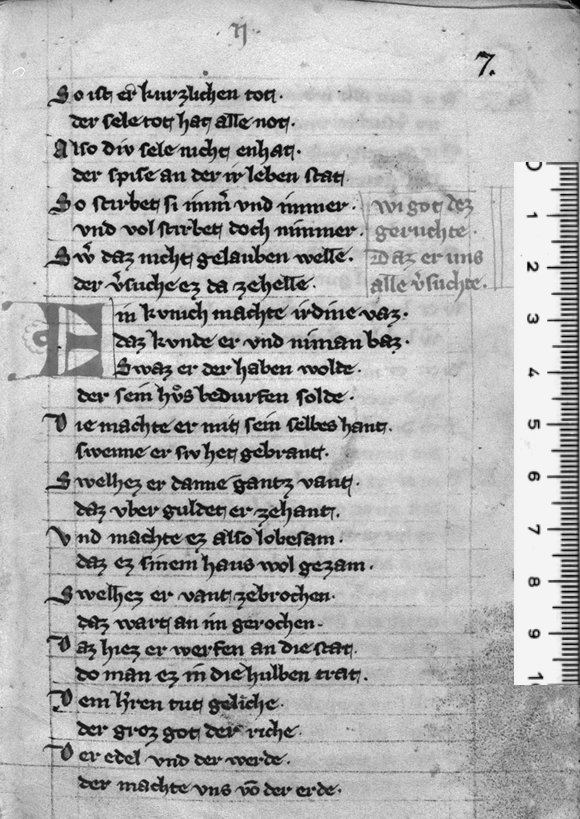 η
7.
So ist er kurzlichen tot.
der sele tot hat alle not.
Also div sele nicht enhat.
der spise an der ir leben stat
So stirbet si imm̄ vnd immer.
vnd vol stirbet doch nimmer.
Sw̄ daz nicht gelauben welle.
der v̄suche ez da ze helle.
wi got dez
geruchte.
Daz er uns
alle v̄suchte.
Ein kvnich machte irdine vaz.
daz kvnde er vnd niman baz.
Swaz er der haben wolde.
der sein hůs bedurfen solde.
Die machte er mit sein selbes hant.
swenne er siv het gebrant.
Swelhez er danne gantz vant.
daz vber guldet er zehant.
Vnd machte ez also lobesam.
daz ez sinem haus wol gezam.
Swelhez er vant zebrochen.
daz wart an im gerochen.
Daz hiez er werfen an die stat.
do man ez in die hulben trat.
Dem h̄ren tut geliche.
der groz got der riche.
Der edel vnd der werde.
der machte vns vō der erde.